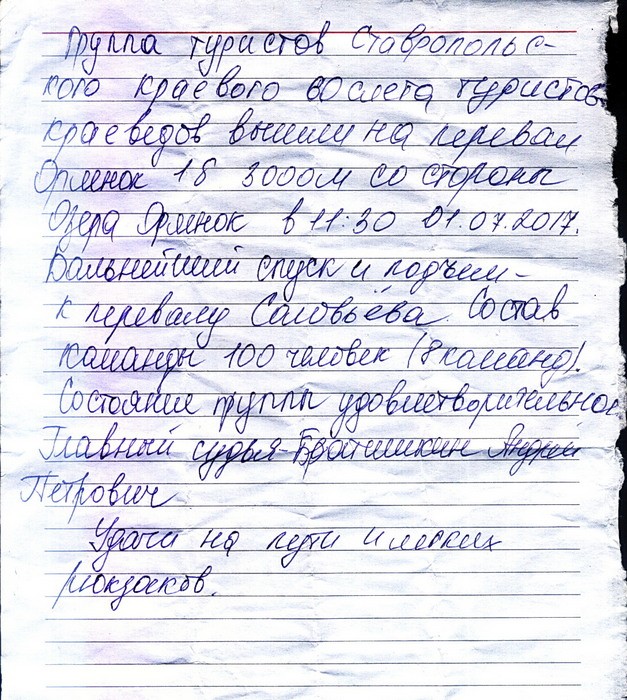 Группа туристов Ставропольс-
кого краевого 60 слета туристов
краеведов вышли на перевал
Орлёнок 1б 3000м со стороны
Озера Орлёнок в 11:30 01.07.2017.
Дальнейший спуск и подъем -
к перевалу Соловьёва. Состав
команды 100 человек (8 команд).
Состояние группы удовлетворительное
Главный судья - Братишкин Андрей
Петрович
Удачи на пути и легких
рюкзаков.